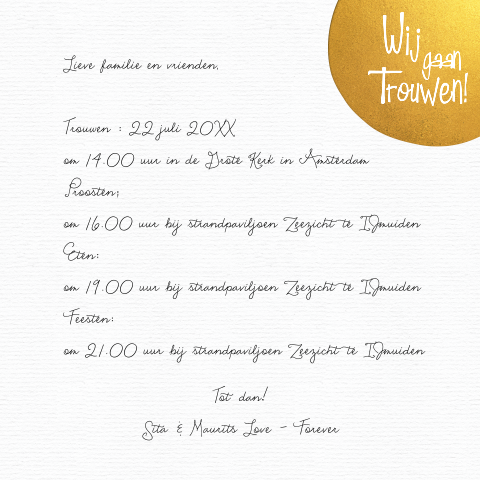 Wij
gaan
Trouwen!
Lieve familie en vrienden,
Trouwen : 22 juli 20XX
om 14.00 uur in de Grote Kerk in Amsterdam
Proosten;
om 16.00 uur bij strandpaviljoen Zeezicht te IJmuiden
Eten:
om 19.00 uur bij strandpaviljoen Zeezicht te IJmuiden
Feesten:
om 21.00 uur bij strandpaviljoen Zeezicht te IJmuiden
Tot dan!
Sita & Maurits Love - Forever